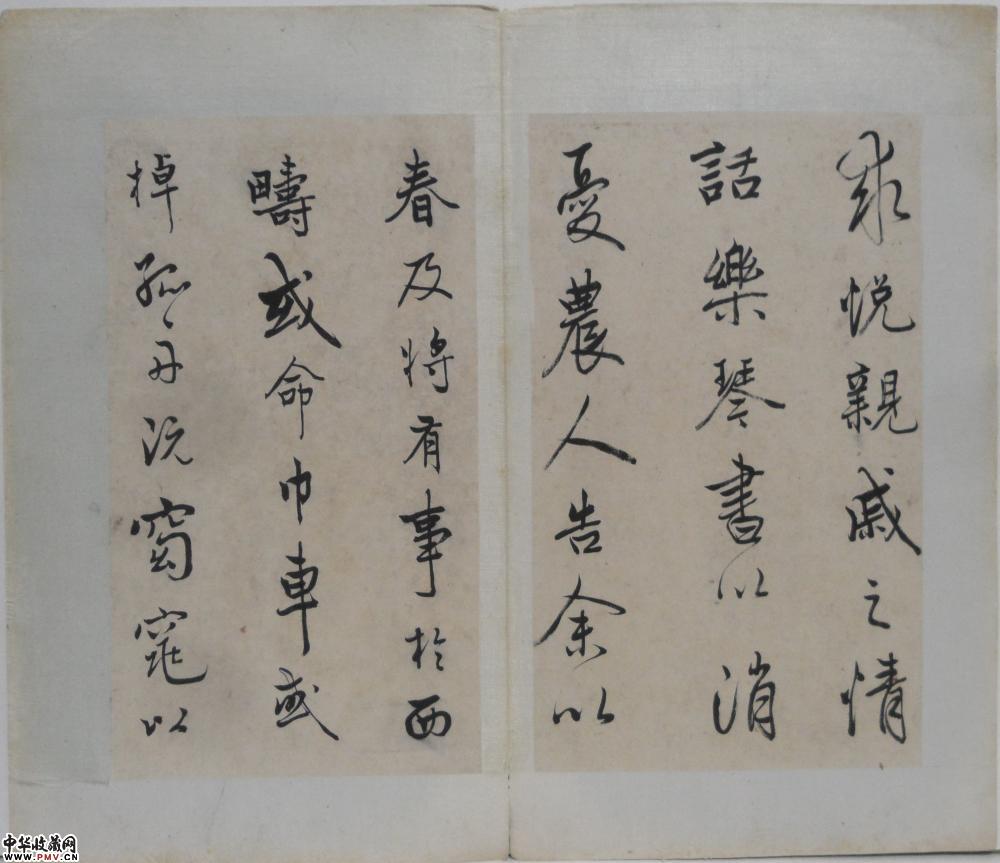 求悅親戚之情
話樂琴書以消
憂農人告余以
春及將有事於西
疇或命巾車或
棹孤舟既窈窕以
中华收藏网
WWW.PMV.CN